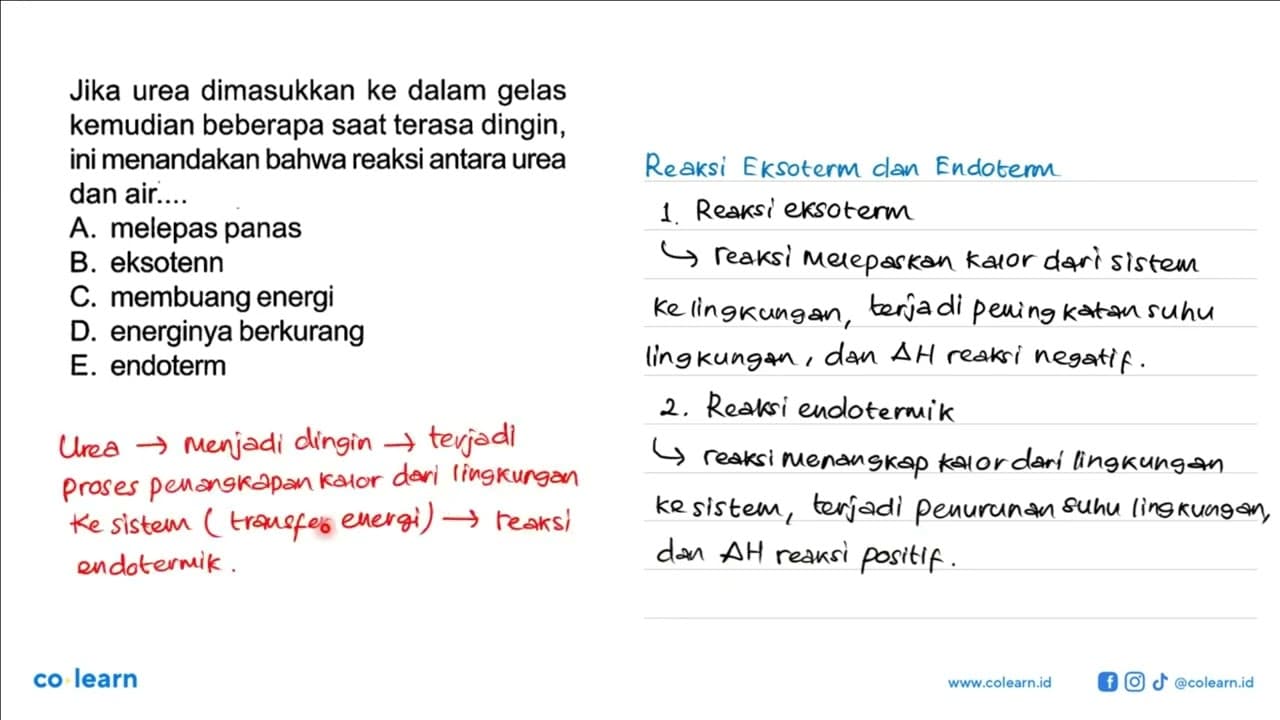 Jika urea dimasukkan ke dalam gelas
kemudian beberapa saat terasa dingin,
ini menandakan bahwa reaksi antara urea
dan air....
A. melepas panas
B. eksotenn
C. membuang energi
D. energinya berkurang
E. endoterm
Urea → menjadi dingin → terjadi
proses penangkapan kalor dari lingkungan
ke sistem (transfer energi) → reaksi
endotermik.
Reaksi Eksoterm dan Endoterm
1. Reaksi eksoterm
↳ reaksi melepaskan kalor dari sistem
ke lingkungan, terjadi peningkatan suhu
lingkungan, dan ΔH reaksi negatif.
2. Reaksi endotermik
↳ reaksi menangkap kalor dari lingkungan
ke sistem, terjadi penurunan suhu lingkungan,
dan ΔH reaksi positif.
co learn
www.colearn.id
@colearn.id